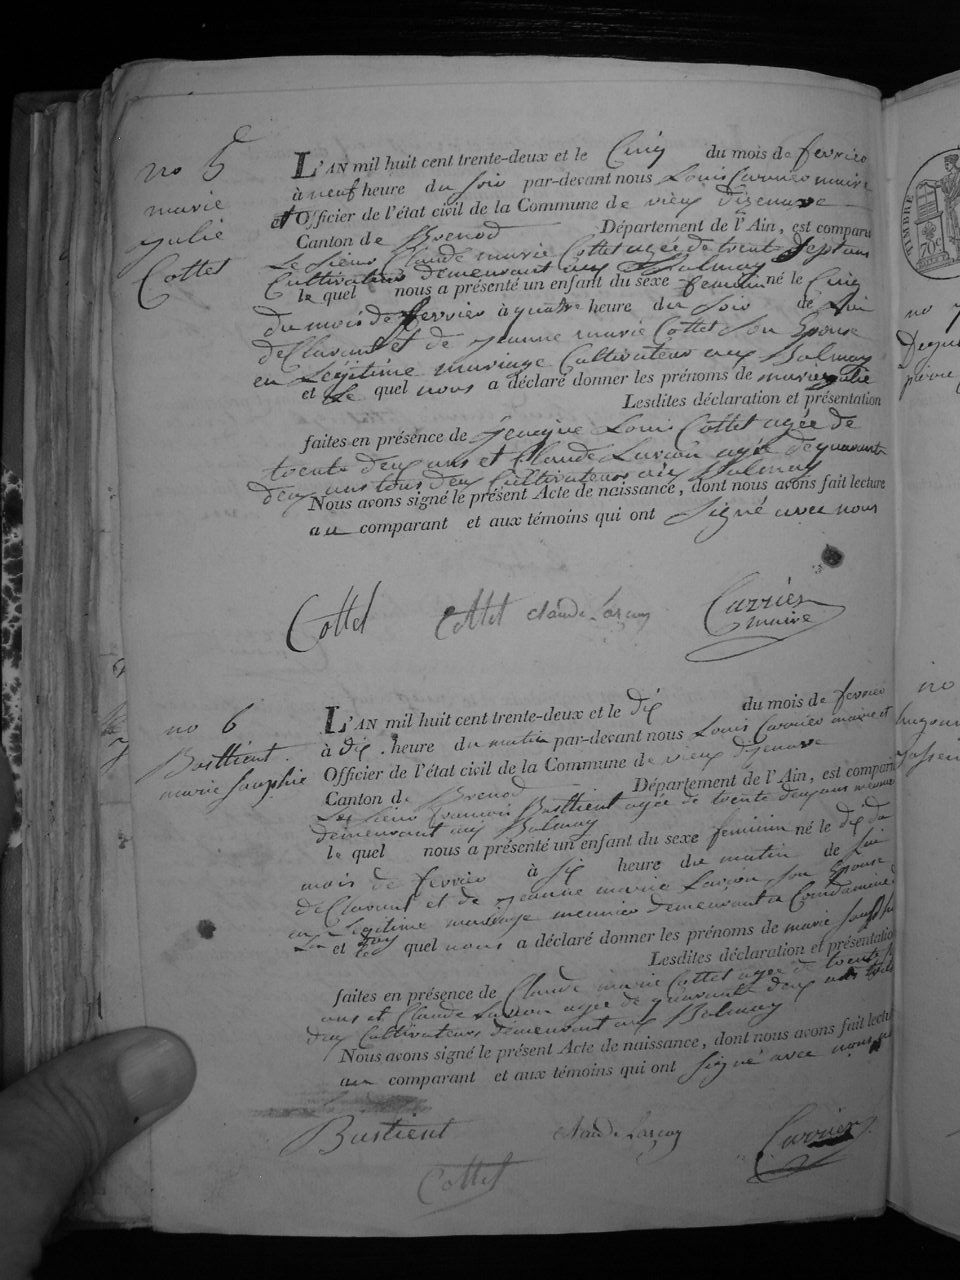 no 5
marie
julie
Cottet
L'AN mil huit cent trente-deux et le Cinq du mois de fevrier
à neuf heure du soir par-devant nous Louis Carrier maire
et Officier de l'état civil de la Commune de vieux d'izenave
Canton de Brenod Département de l'Ain, est comparu
Le sieur Claude marie Cottet agée de trente sept ans
Cultivateur demeurant aux Balmay
le quel nous a présenté un enfant du sexe feminin né le Cinq
du mois de fevrier à quatre heure du soir de Lui
de Clarant et de jeanne marie Cottet son Epouse
en Légitime mariage Cultivateur aux Balmay
et le quel nous a déclaré donner les prénoms de marie julie
Lesdites déclaration et présentation
faites en présence de Louis Cottet agée de
trente deux ans et Claude Larçon agée de quarante
deux ans tous deux Cultivateurs aux Balmay
Nous avons signé le présent Acte de naissance, dont nous avons fait lecture
au comparant et aux témoins qui ont signé avec nous
Cottet Cottet Claude Larçon Carrier
maire
no 6
Basttient
marie sauphie
L'AN mil huit cent trente-deux et le dix du mois de fevrier
à dix heure du matin par-devant nous Louis Carrier maire et
Officier de l'état civil de la Commune de vieux d'izenave
Canton de Brenod Département de l'Ain, est comparu
Le sieur francois Basttient agée de trente deux ans meunier
demeurant aux Balmay
le quel nous a présenté un enfant du sexe feminin né le dix du
mois de fevrier à six heure du matin de Lui
de Clarant et de jeanne marie Larçon son Epouse
en Légitime mariage meunier demeurant a Condamine
et le quel nous a déclaré donner les prénoms de marie sauphie
Lesdites déclaration et présentation
faites en présence de Claude marie Cottet agée de trente
ans et Claude Larçon agée de quarante deux ans tous
deux Cultivateurs demeurant aux Balmay
Nous avons signé le présent Acte de naissance, dont nous avons fait lectu
au comparant et aux témoins qui ont signé avec nous
Bastient Claude Larçon Carrier
Cottet
TIMBRE
70c
no 7
no